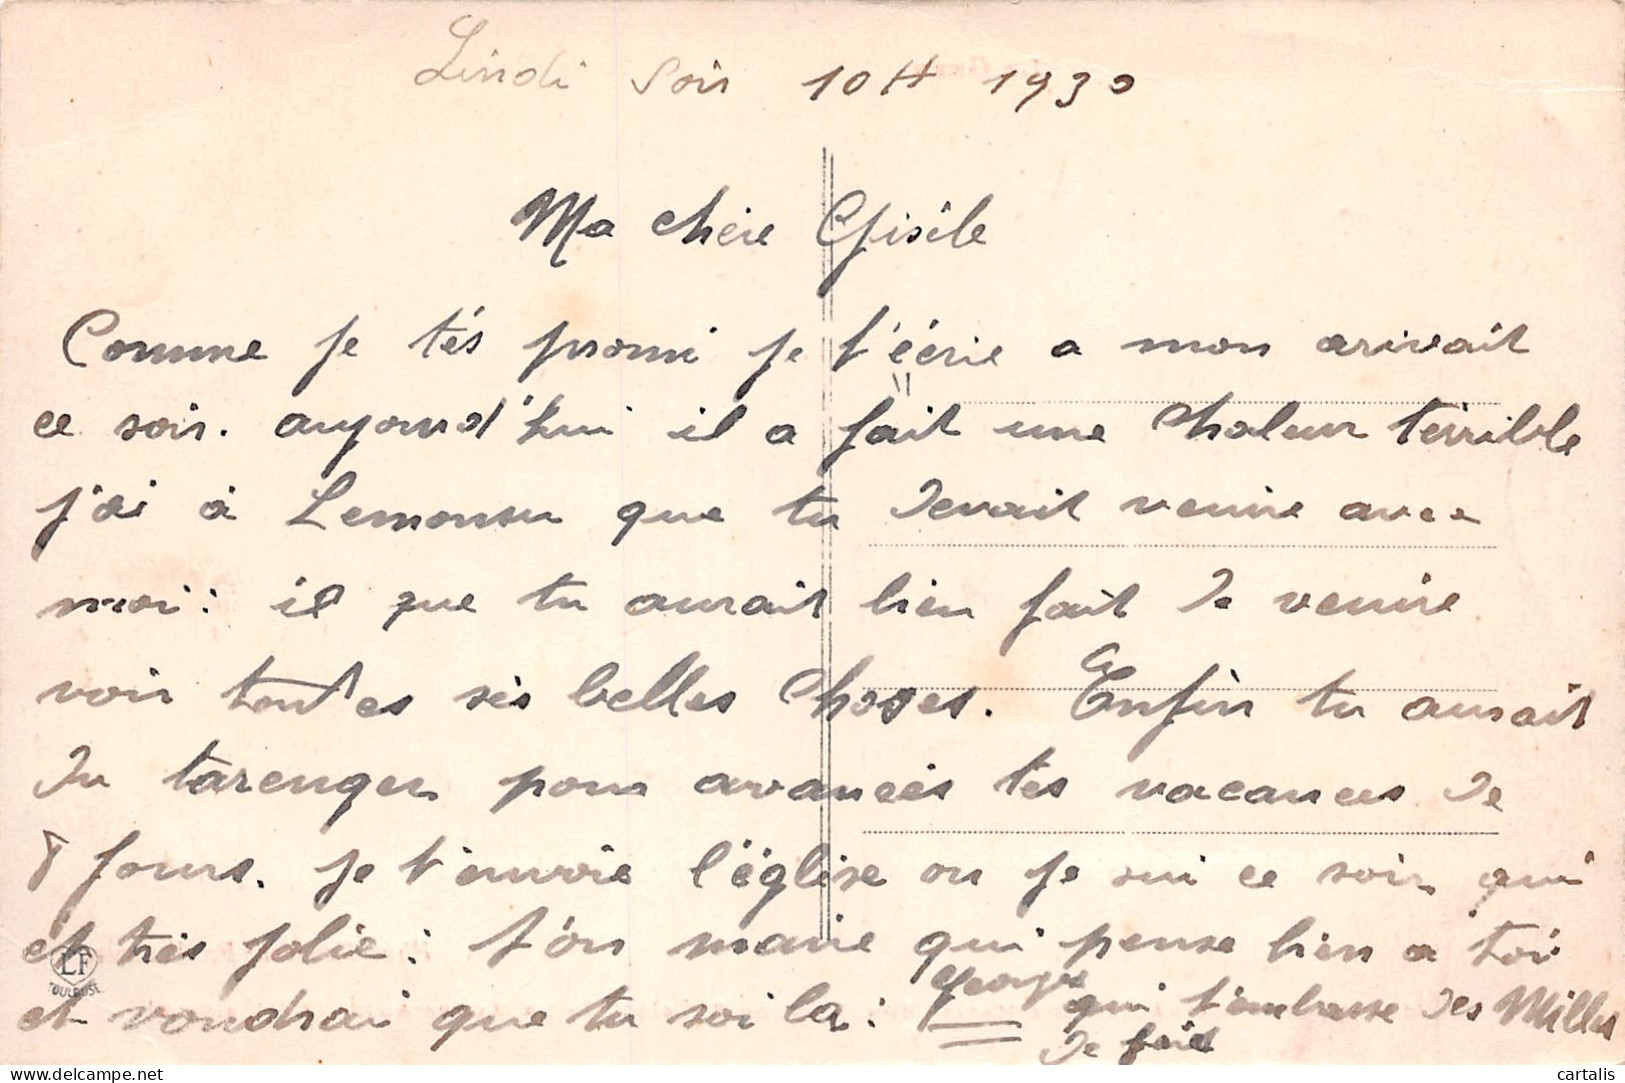 Lindi soir 10H 1930
Ma chère Gisèle
Comme je tés promi je t'écrie a mon arivait
ce soir. aujourd'hui il a fait une chaleur terrible
j'ai à que tu devait venire avec
moi: il que tu aurait bien fait de venire
voir toutes sès belles choses. Enfin tu aurait
du tarenger pour avancés tes vacances de
8 jours. je t'envoie l'église ou je sui ce soir qui
et très jolie: t'on marie qui pense bien a toi
et voudrai que tu soi la: George qui t'embrasse des Milles
de foid
LF
TOULOUSE
cartalis
delcampe.net